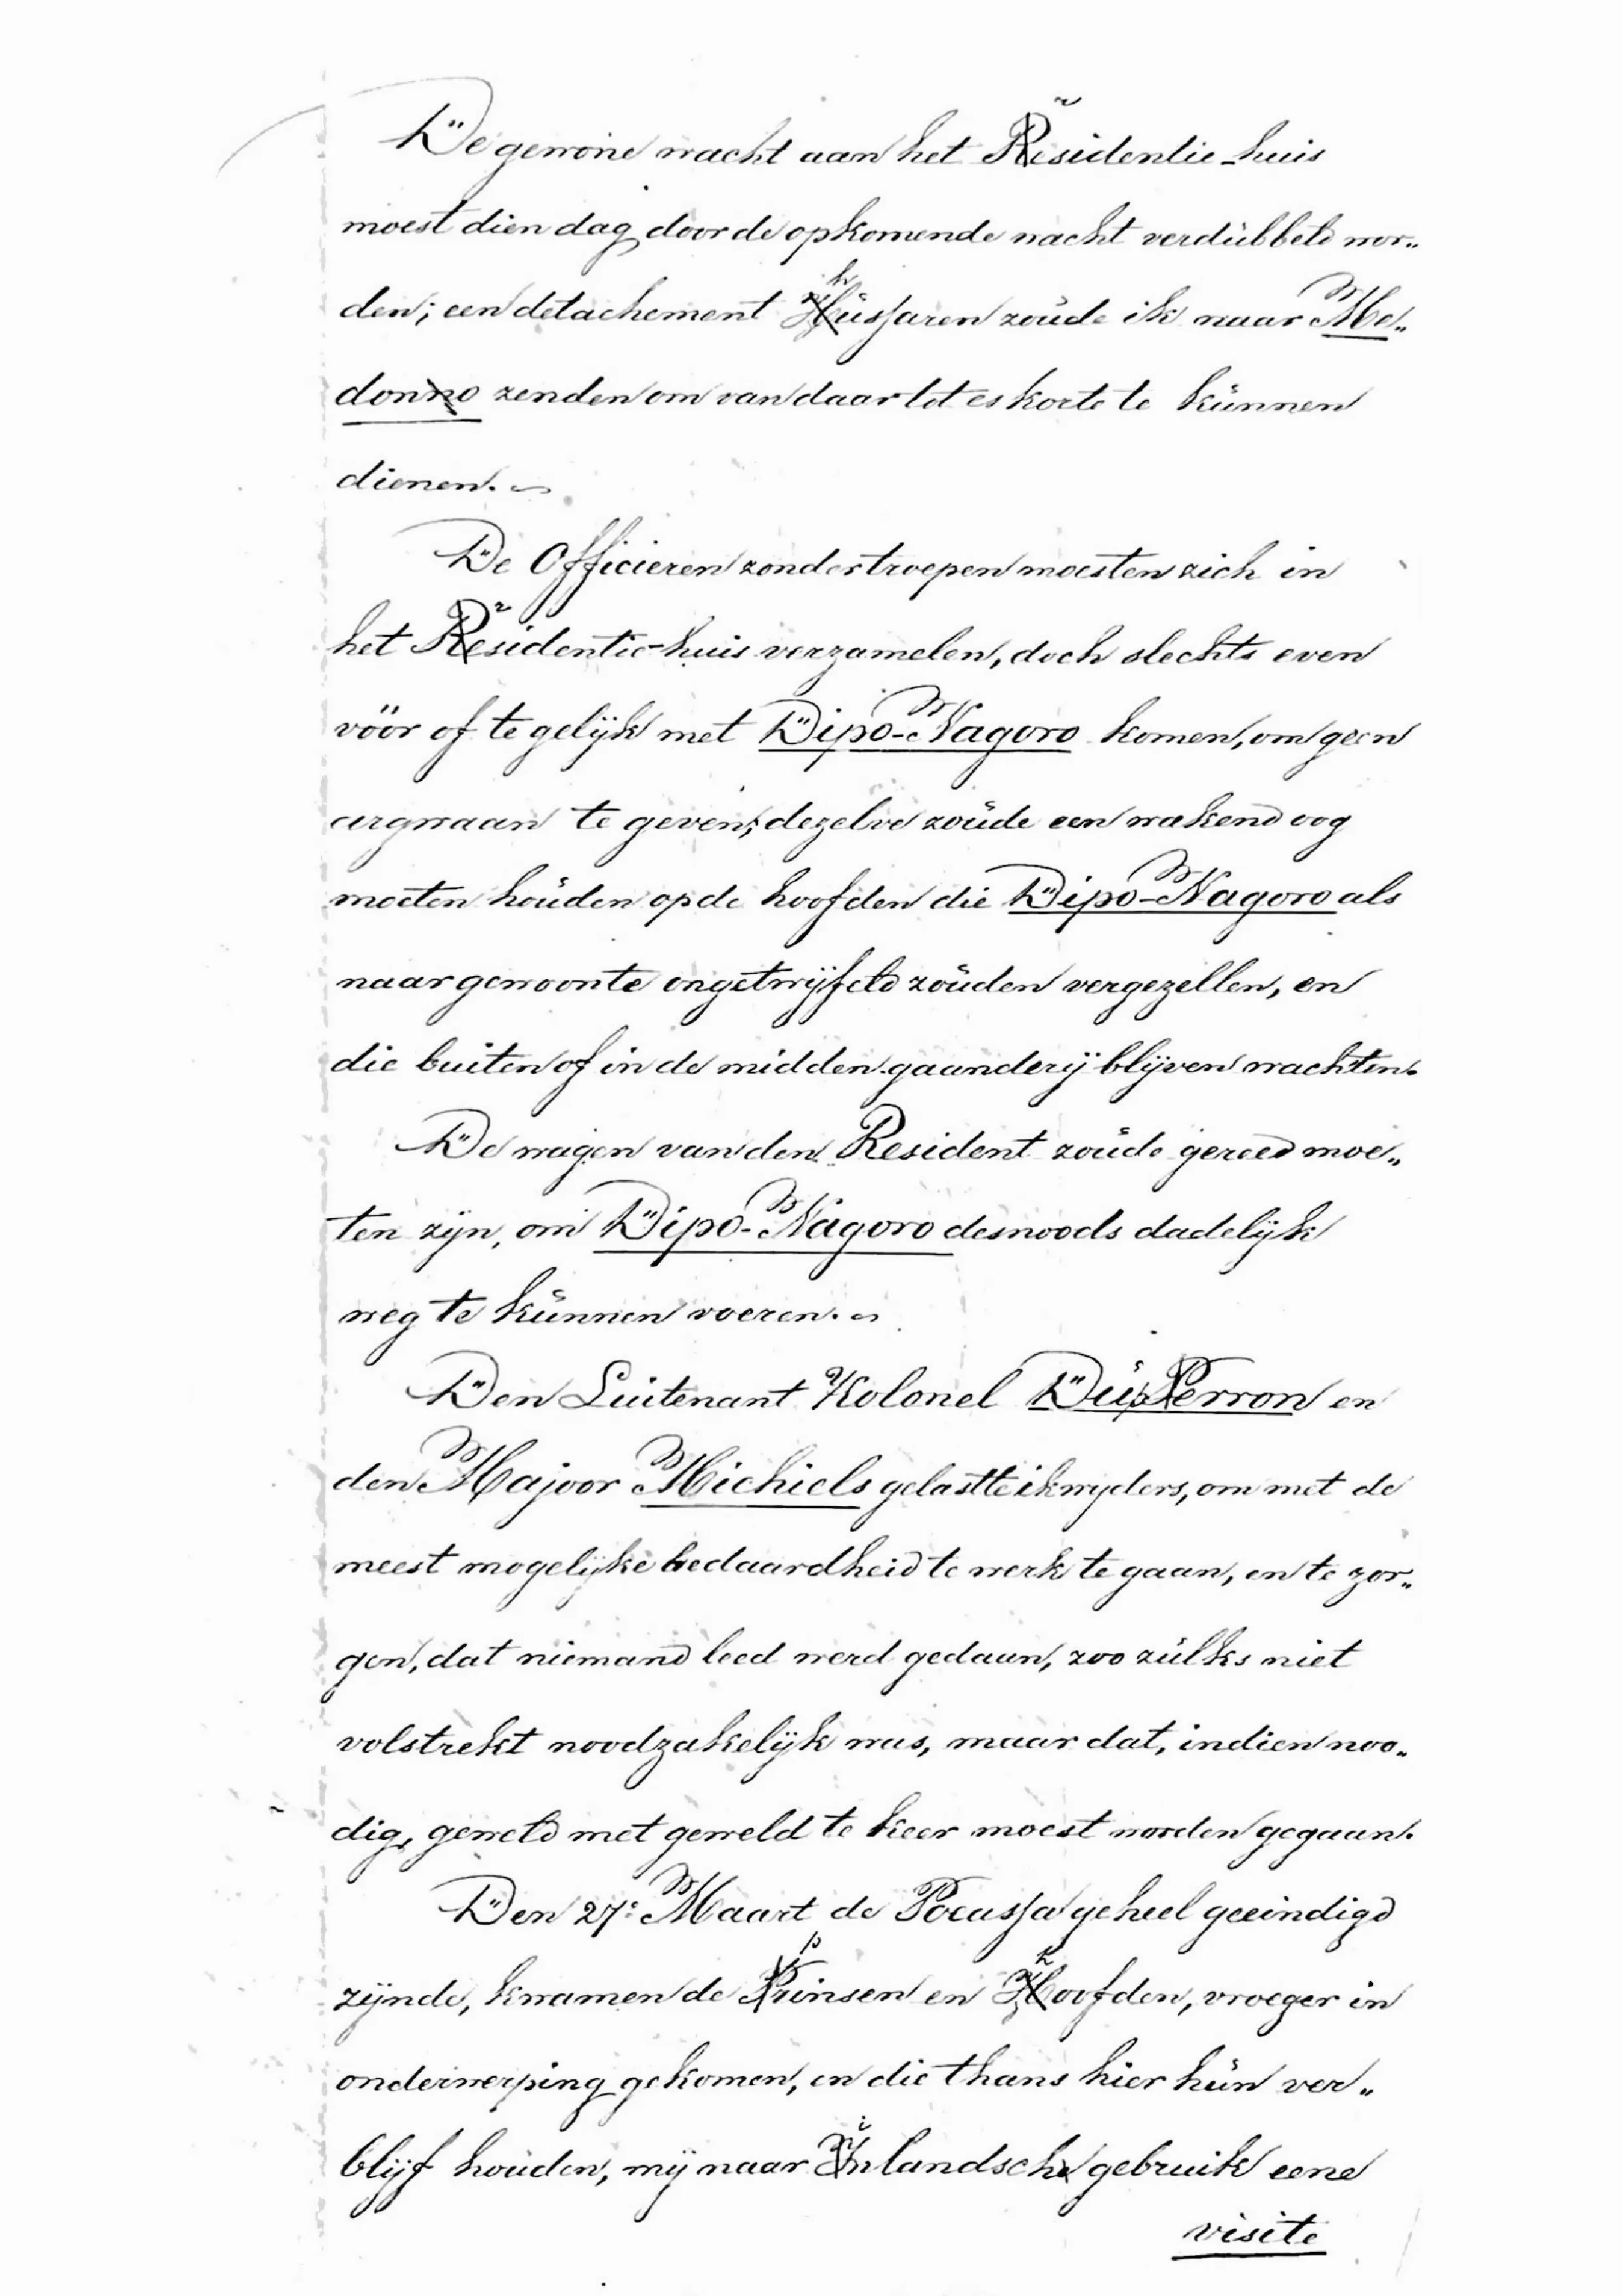 De gewone wacht aan het Residentie-huis
moest dien dag door de opkomende wacht verdubbeld wor„
den; een detachement Hussaren zoude ik naar Me„
donno zenden om van daar tot eskorte te kunnen
dienen.
De Officieren zonder troepen moesten zich in
het Residentie-huis verzamelen, doch slechts even
vóór of te gelijk met Dipo-Nagoro komen, om geen
argwaan te geven; dezelve zoude een wakend oog
moeten houden op de hoofden die Dipo-Nagoro als
naar gewoonte ongetwijfeld zouden vergezellen, en
die buiten of in de midden-gaanderij blijven wachten.
De wagen van den Resident zoude gereed moe„
ten zijn, om Dipo-Nagoro desnoods dadelijk
weg te kunnen voeren.
Den Luitenant Kolonel Du Perron en
den Majoor Michiels gelastte ik wijders, om met de
meest mogelijke bedaardheid te werk te gaan, en te zor„
gen, dat niemand leed werd gedaan, zoo zulks niet
volstrekt noodzakelijk was, maar dat, indien noo„
dig, geweld met geweld te keer moest worden gegaan.
Den 27e Maart de Poeassa geheel geeindigd
zijnde, kwamen de Prinsen en Hoofden, vroeger in
onderwerping gekomen, en die thans hier hun ver„
blijf houden, mij naar Inlandsche gebruik eene
visite